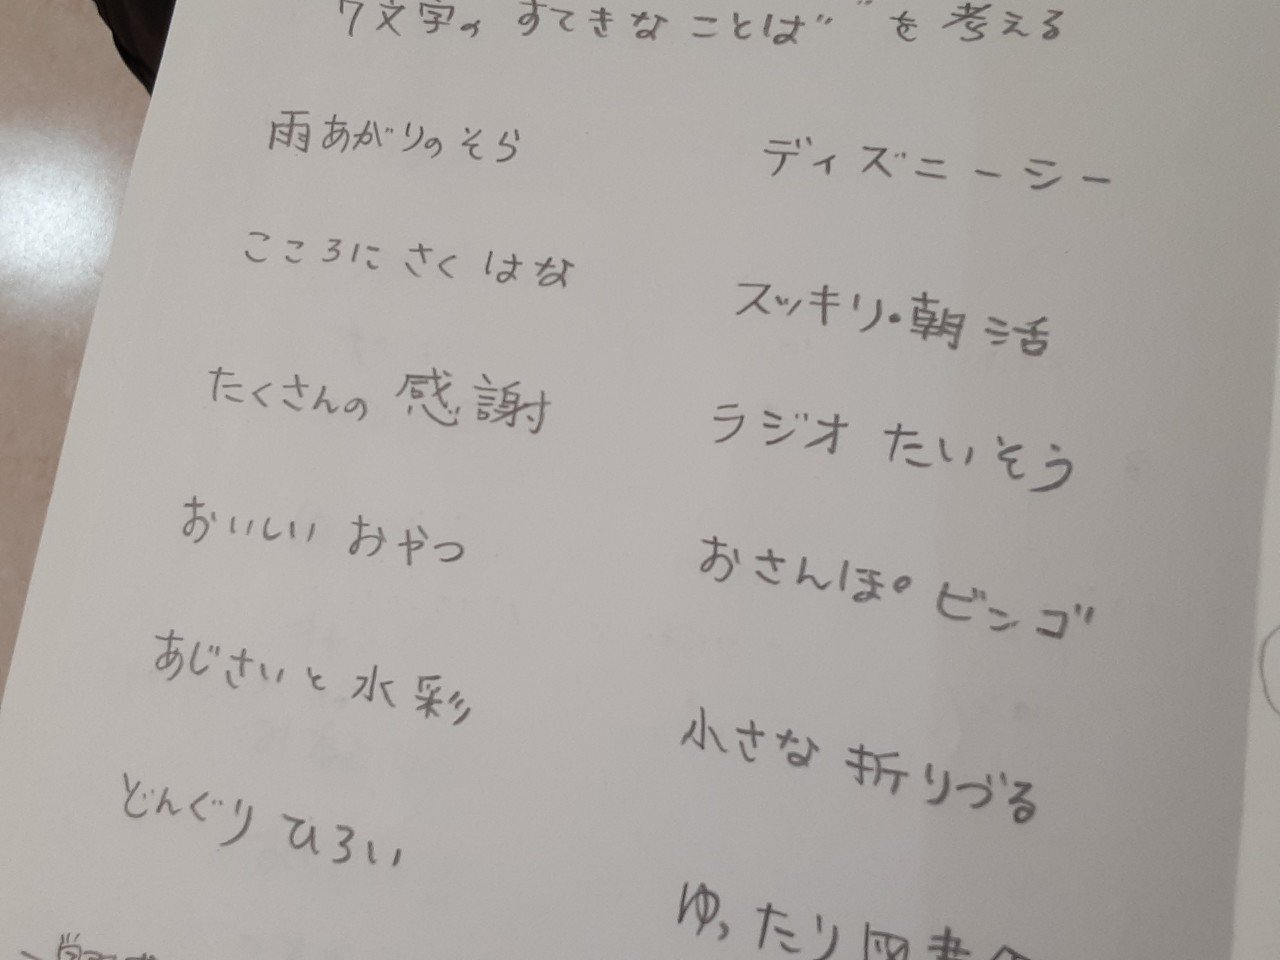 7文字の すてきな ことば"を 考える
雨あがりのそら
こころに さく はな
たくさんの 感謝
おいしい おやつ
あじさいと 水彩
どんぐり ひろい
ディズニーシー
スッキリ・朝活
ラジオ たいそう
おさんぽ ビンゴ
小さな 折りづる
ゆったり 図書